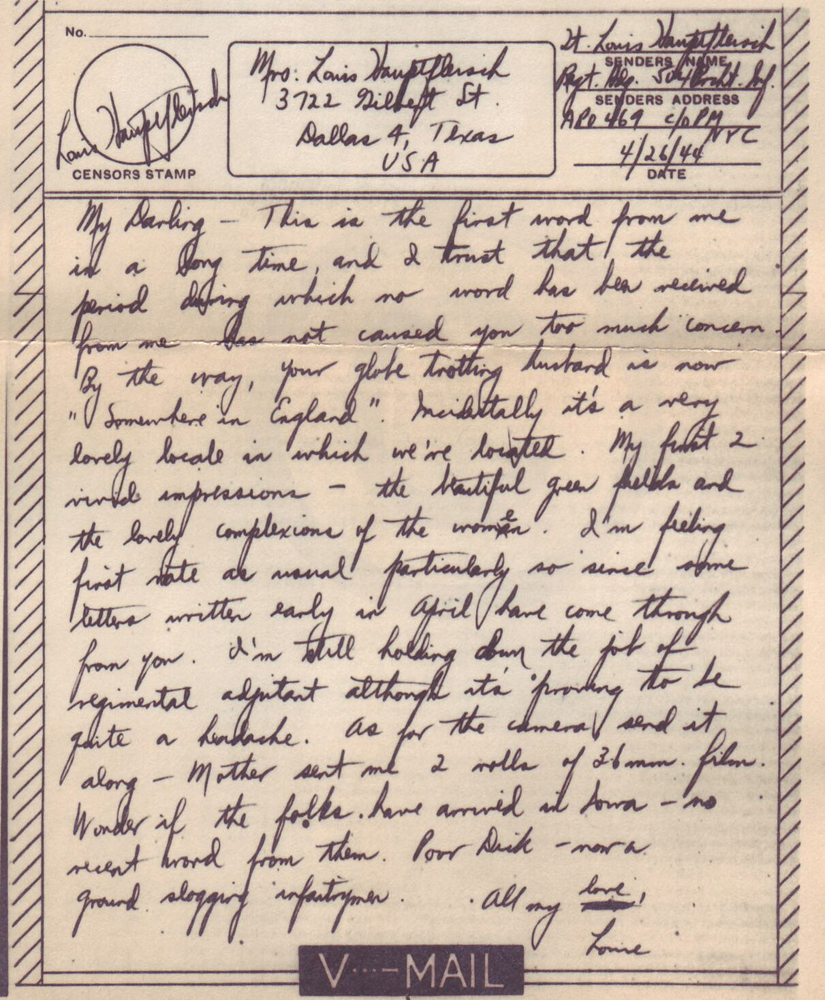 No.
Louis Hauptfleisch
CENSORS STAMP
Mrs. Louis Hauptfleisch
3722 Gilbert St.
Dallas 4, Texas
USA
Lt. Louis Hauptfleisch
SENDERS NAME
Regt. Hdq. 504 Prcht. Inf.
SENDERS ADDRESS
APO 469 c/o PM
NYC
4/26/44
DATE
My Darling – This is the first word from me
in a long time, and I trust that the
period during which no word has been received
from me has not caused you too much concern.
By the way, your globe trotting husband is now
"Somewhere in England". Incidentally it's a very
lovely locale in which we're located. My first 2
vivid impressions – the beautiful green fields and
the lovely complexions of the women. I'm feeling
first rate as usual particularly so since some
letters written early in April have come through
from you. I'm still holding down the job of
regimental adjutant although it's proving to be
quite a headache. As for the camera, send it
along – Mother sent me 2 rolls of 36 mm. film.
Wonder if the folks have arrived in Iowa – no
recent word from them. Poor Dick – now a
ground slogging infantrymen. All my love,
Louie
V···–MAIL